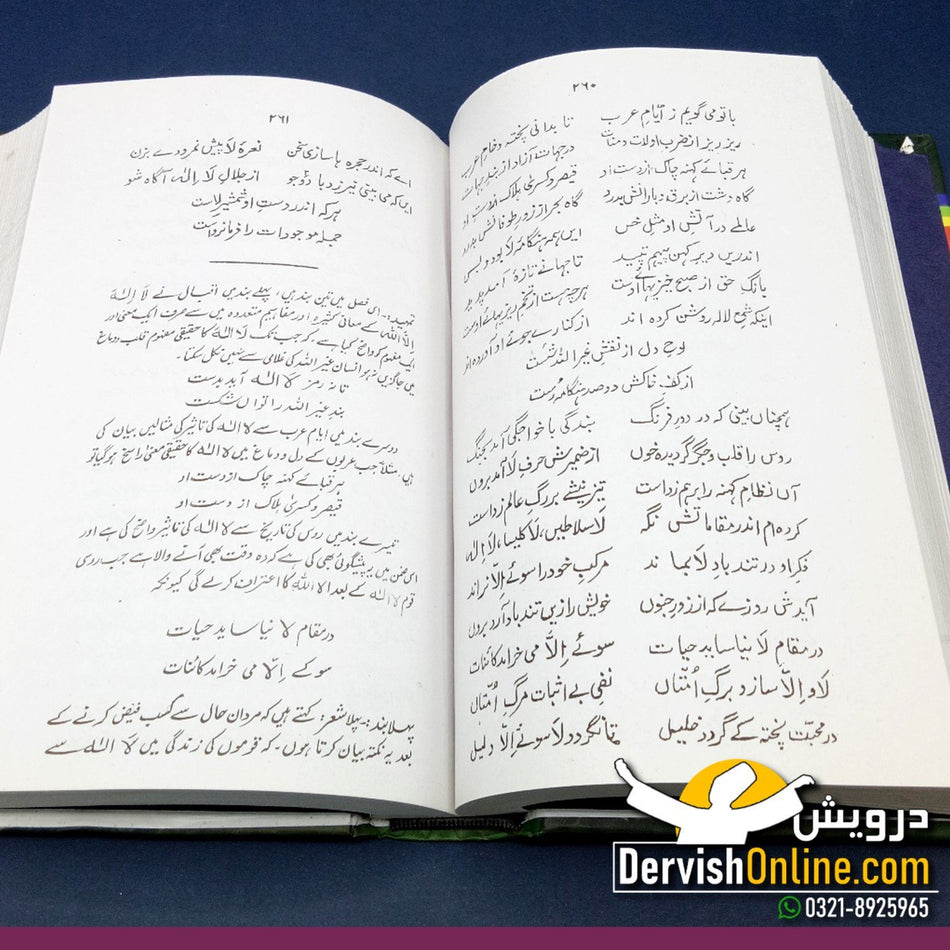 ۲۶۰
با تو می گویم ز ایامِ عرب تا بدانی پختہ و خامِ عرب
ریز ریز از ضربِ او لات و منات در جہات آزاد از بندِ جہات
ہر قبائے کہنہ چاک از دست او قیصر و کسریٰ ہلاک از دست او
گاہ دشت از برق و بارانش بدرد گاہ بحر از زورِ طوفانش بدرد
عالمے در آتشِ او مثلِ خس ایں ہمہ ہنگامۂ لا بود و بس
اندریں دیرِ کہن پیہم تپید تا جہانے تازۂ آمد پدید
بانگِ حق از صبح خیزیہائے اوست ہرچہ ہست از تخم ریزیہائے اوست
اینکہ شمعِ لالہ روشن کردہ اند از کنارے جوئے او آوردہ اند
لوحِ دل از نقشِ غیر اللہ شست
از کفِ خاکش دو صد ہنگامہ رست
ہمچناں بینی کہ در دورِ فرنگ بندگی با خواجگی آمد بجنگ
روس را قلب و جگر گردیدہ خوں از ضمیرش حرفِ لَا آمد بروں
آں نظامِ کہنہ را برہم زد است تیز نیشے بر رگِ عالم زد است
کردہ ام اندر مقاماتش نگہ لَا سلاطیں، لَا کلیسا، لَا اِلٰہ
فکرِ او در تند بادِ لَا بماند مرکبِ خود را سوئے اِلّا نراند
آیدش روزے کہ از زورِ جنوں خویش را زیں تند باد آرد بروں
در مقامِ لَا نیاساید حیات سوئے اِلّا می خرامد کائنات
لَا و اِلّا ساز و برگِ اُمتاں نفی بے اثبات مرگِ اُمتاں
در محبت پختہ کے گردد خلیل تا نگردد لَا سوئے اِلّا دلیل
۲۶۱
اے کہ اندر حجرہ ہا سازی سخن نعرۂ لَا پیشِ نمرودے بزن
ایں کہ می بینی نیرزد با دو جو از جلالِ لَا اِلٰہ آگاہ شو
ہر کہ اندر دستِ او شمشیرِ لاست
جملہ موجودات را فرمانرواست
تمہید:۔ اس فصل میں تین بند ہیں، پہلے بند میں اقبال نے لَا اِلٰہَ
اِلّا اللہ کے معانی کثیرہ اور مفاہیم متعددہ میں سے صرف ایک معنی اور
ایک مفہوم کو واضح کیا ہے، کہ جب تک لَا اِلٰہ کا حقیقی مفہوم قلب و دماغ
میں جاگزیں نہ ہو انسان غیر اللہ کی غلامی سے نہیں نکل سکتا۔
تا نہ رمز لَا اِلٰہ آید بدست
بندِ غیر اللہ را نتواں شکست
دوسرے بند میں ایام عرب سے لَا اِلٰہ کی تاثیر کی مثالیں بیان کی
ہیں مثلاً جب عربوں کے دل و دماغ میں لَا اِلٰہ کا حقیقی معنیٰ راسخ ہو گیا تو
ہر قبائے کہنہ چاک از دست او
قیصر و کسریٰ ہلاک از دست او
تیسرے بند میں روس کی تاریخ سے لَا اِلٰہ کی تاثیر واضح کی ہے اور
اسی ضمن میں یہ پیشگوئی بھی کی ہے کہ وہ وقت بھی آنے والا ہے جب روسی
قوم لَا اِلٰہ کے بعد اِلّا اللہ کا اعتراف کرے گی کیونکہ
در مقامِ لا نیاساید حیات
سوئے اِلّا می خرامد کائنات
پہلا بند:۔ پہلا شعر: کہتے ہیں کہ مردانِ حال سے کسبِ فیض کرنے کے
بعد یہ نکتہ بیان کرتا ہوں۔ کہ قوموں کی زندگی میں لَا اِلٰہ سے
درویش
DervishOnline.com
0321-8925965